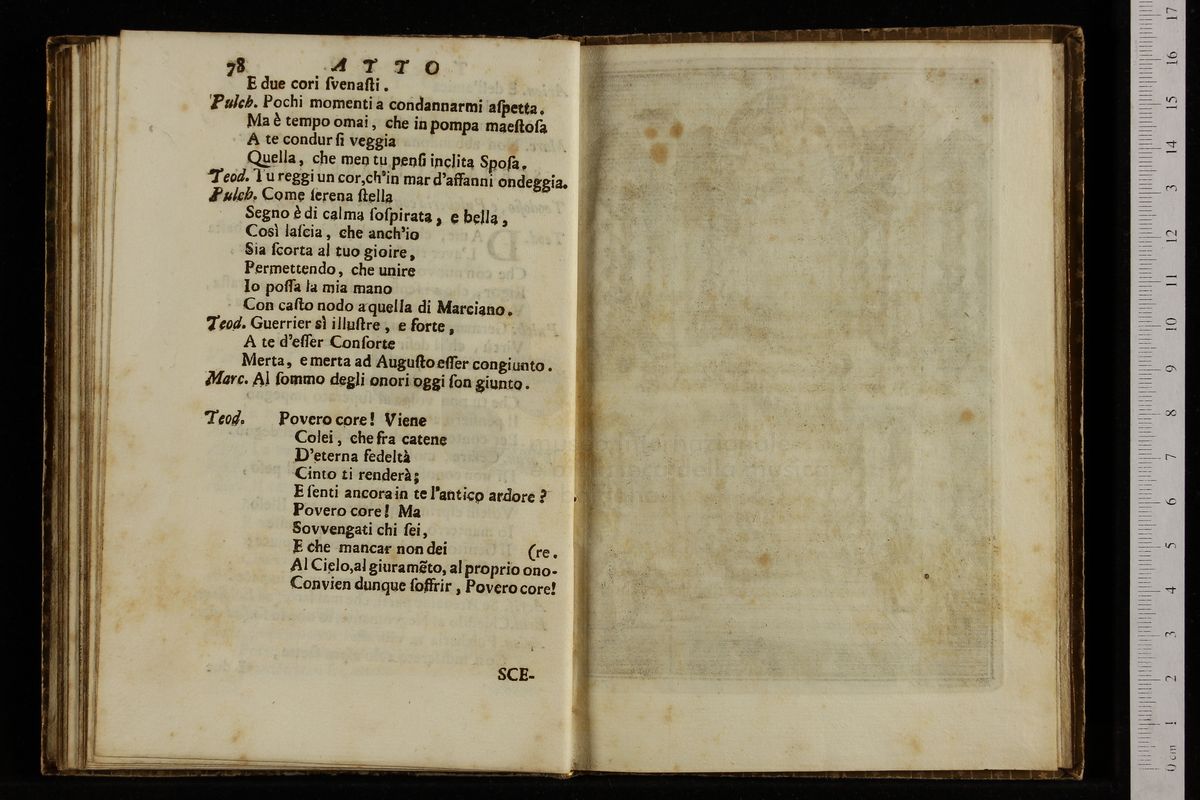 78 ATTO
E due cori ſvenaſti.
Pulch. Pochi momenti a condannarmi aſpetta.
Ma è tempo omai, che in pompa maeſtoſa
A te condur ſi veggia
Quella, che men tu penſi inclita Spoſa.
Teod. Tu reggi un cor, ch'in mar d'affanni ondeggia.
Pulch. Come ſerena ſtella
Segno è di calma ſoſpirata, e bella,
Così laſcia, che anch'io
Sia ſcorta al tuo gioire,
Permettendo, che unire
Io poſſa la mia mano
Con caſto nodo a quella di Marciano.
Teod. Guerrier sì illuſtre, e forte,
A te d'eſſer Conſorte
Merta, e merta ad Auguſto eſſer congiunto.
Marc. Al ſommo degli onori oggi ſon giunto.
Teod. Povero core! Viene
Colei, che fra catene
D'eterna fedeltà
Cinto ti renderà;
E ſenti ancora in te l'antico ardore?
Povero core! Ma
Sovvengati chi ſei,
E che mancar non dei (re.
Al Cielo, al giuramẽto, al proprio ono-
Convien dunque ſoffrir, Povero core!
SCE-
17
16
15
14
13
12
11
10
9
8
7
6
5
4
3
2
1
0 cm